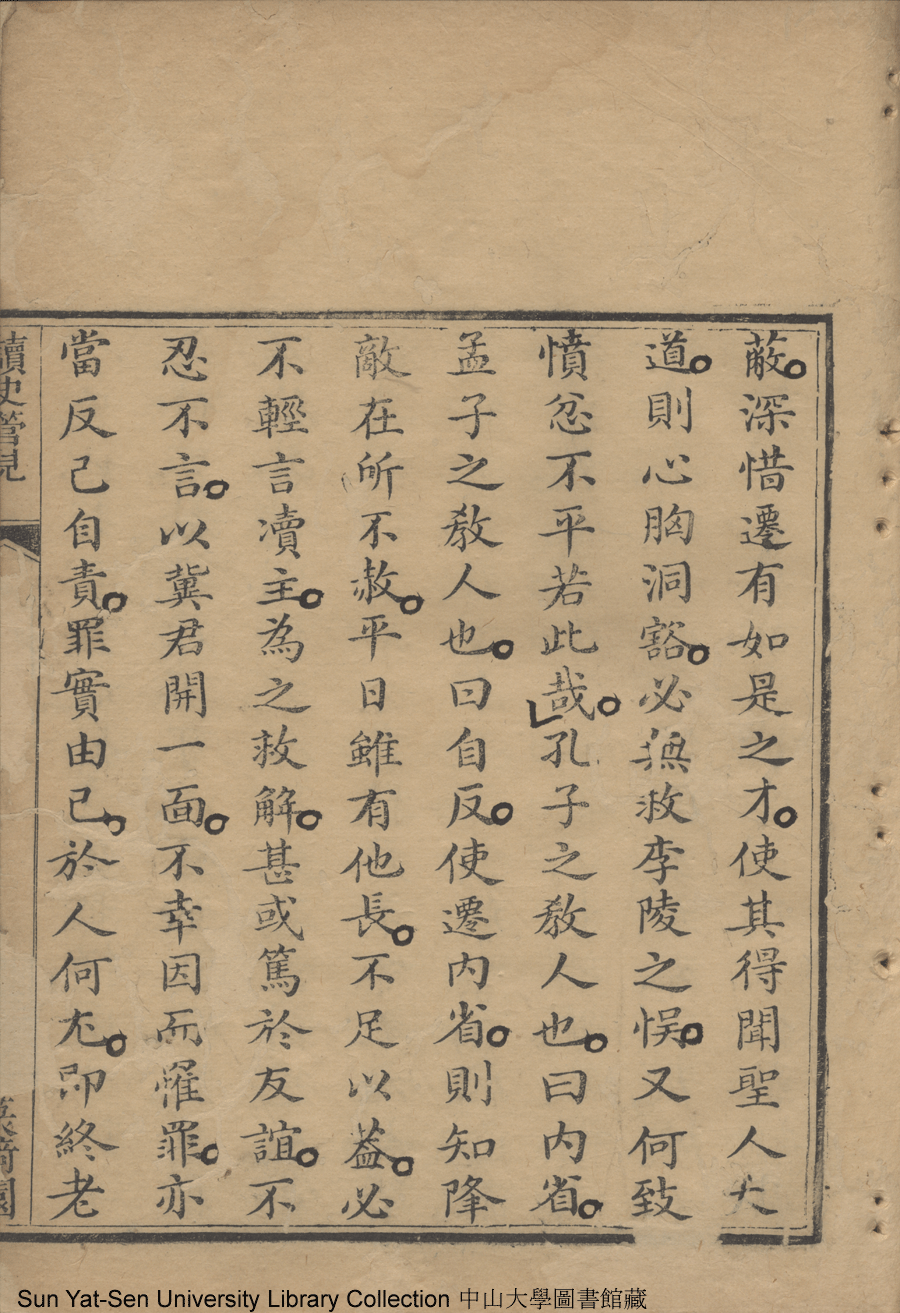 蔽。深惜遷有如是之才。使其得聞聖人大
道。則心胸洞豁。必無救李陵之悞。又何致
憤忿不平若此哉。孔子之教人也。曰內省。
孟子之教人也。曰自反。使遷內省。則知降
敵在所不赦。平日雖有他長。不足以葢。必
不輕言瀆主。為之救解。甚或篤於友誼。不
忍不言。以冀君開一面。不幸因而罹罪。亦
當反己自責。罪實由己。於人何尤。即終老
讀史管見
Sun Yat-Sen University Library Collection 中山大學圖書館藏